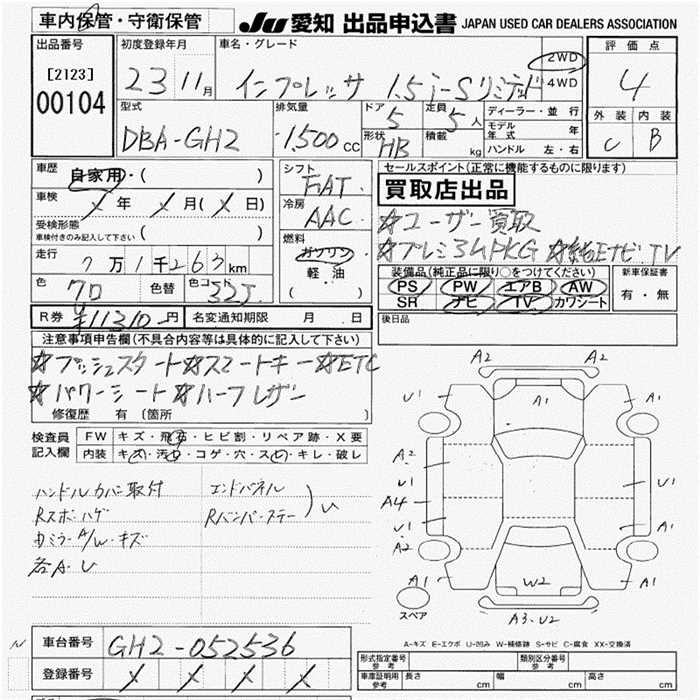 車内保管・守衛保管
JU 愛知 出品申込書 JAPAN USED CAR DEALERS ASSOCIATION
出品番号
[2123]
00104
初度登録年月
23 11月
車名・グレード
インプレッサ 1.5 i-Sリミテッド
2WD
4WD
評価点
4
外装 内装
C B
型式
DBA-GH2
排気量
1,500 cc
ドア
5
定員
5 人
形状
HB
積載
kg
ディーラー・並行
モデル年式 年
ハンドル 左・右
車歴
自家用・( )
車検
年 月( 日)
受検形態
車検付きのみ記入して下さい ( )
走行
7万1千263km
色
クロ
色替
色コード
32J
シフト
FAT
冷房
AAC
燃料
ガソリン
軽油
( ・ )
セールスポイント(正常に機能するものに限ります)
買取店出品
☆ユーザー買取
☆プレミアムPKG ☆純正ナビTV
装備品(純正品に限り○をつけてください)
PS PW エアB AW
SR ナビ TV カワシート
新車保証書
有・無
R券 ¥11310円
名変通知期限 月 日
後日品
注意事項申告欄(不具合内容等は具体的に記入して下さい)
☆プッシュスタート☆スマートキー☆ETC
☆パワーシート☆ハーフレザー
修復歴 有 〔箇所 〕
検査員
記入欄
FW キズ・飛石・ヒビ割・リペア跡・X要
内装 キズ・汚れ・コゲ・穴・スレ・キレ・破レ
ハンドルカバー取付
Rスポ・ハゲ
各A・U
エンドパネル
Rバンパーステー
U
A2 A2
U1 A1 A1
A2
U1 U1
A4
U1 A1
A2
A1 W2 A1
スペア
A3・U2
A-キズ E-エクボ U-凹み W-補修跡 S-サビ C-腐食 XX-交換済
N
車台番号 GH2-052536
登録番号
形式指定番号
参考
類別区分番号
参考
車庫証明用
参考
長さ cm 幅 cm 高さ cm